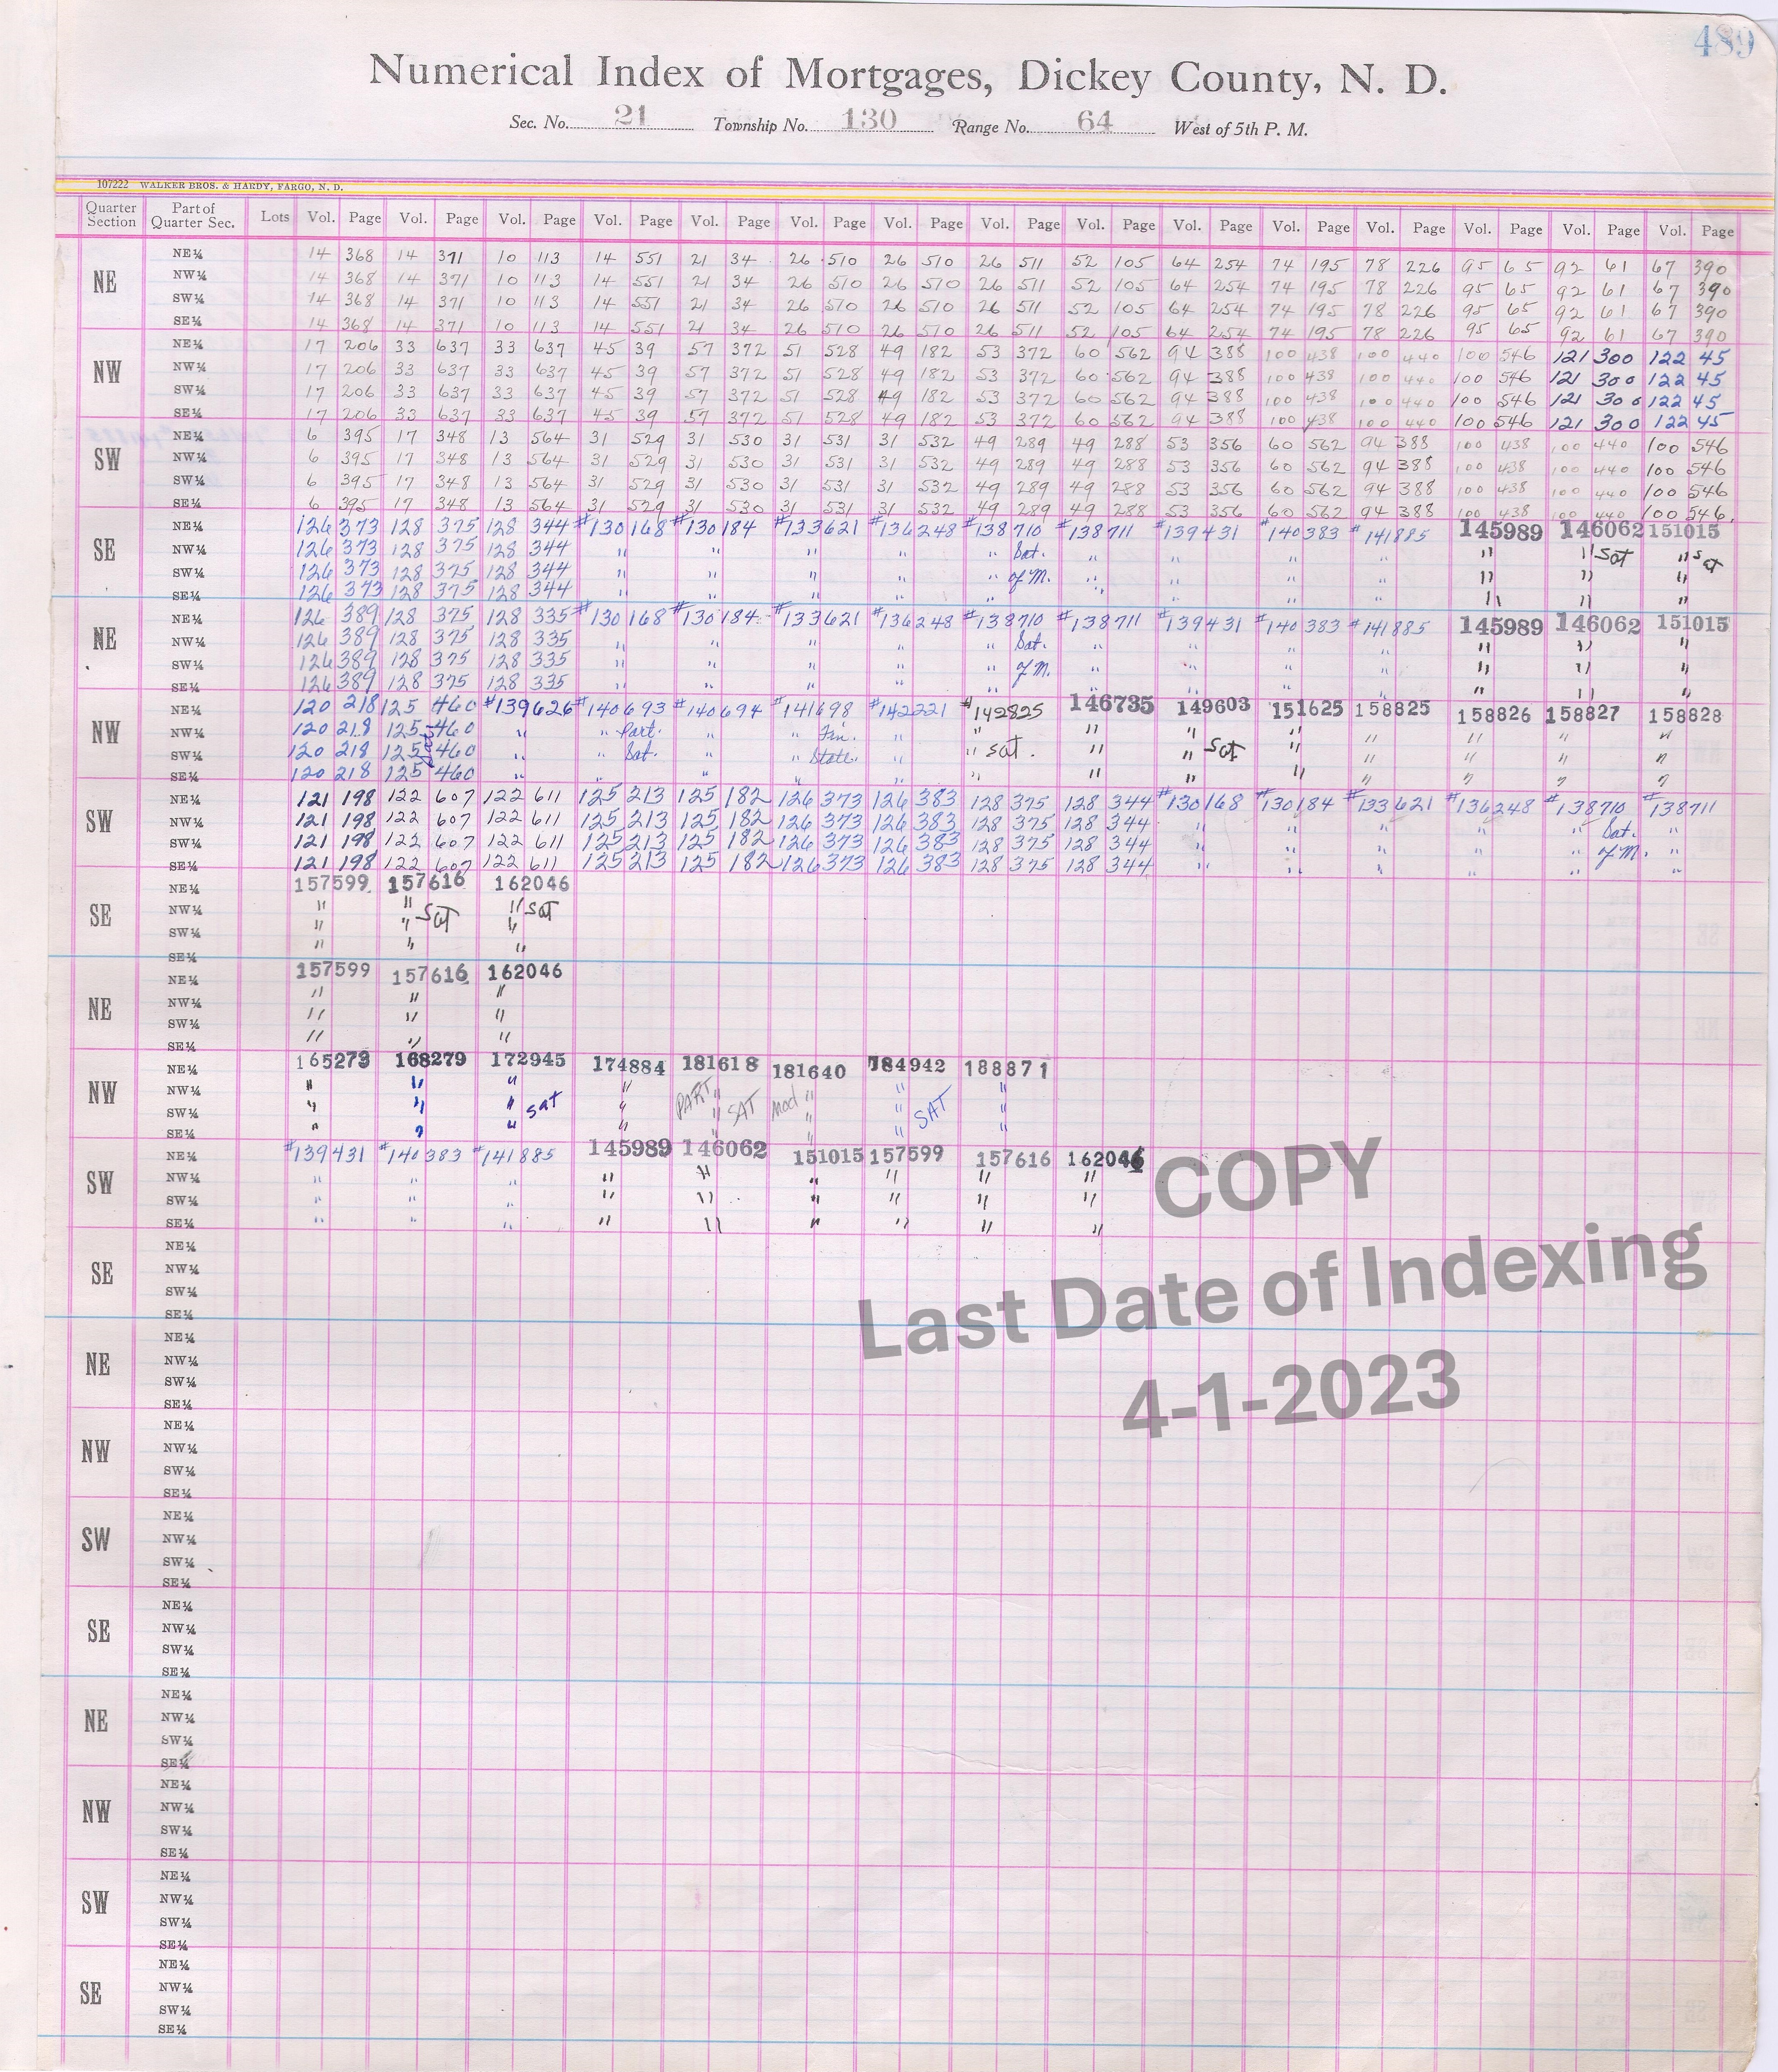 489
Numerical Index of Mortgages, Dickey County, N. D.
Sec. No. 21 Township No. 130 Range No. 64 West of 5th P. M.
107222 WALKER BROS. & HARDY, FARGO, N. D.
Quarter Section Part of Quarter Sec. Lots Vol. Page Vol. Page Vol. Page Vol. Page Vol. Page Vol. Page Vol. Page Vol. Page Vol. Page Vol. Page Vol. Page Vol. Page Vol. Page Vol. Page Vol. Page
NE
NE¼ 14 368 14 371 10 113 14 551 21 34 26 510 26 510 26 511 52 105 64 254 74 195 78 226 95 65 92 61 67 390
NW¼ 14 368 14 371 10 113 14 551 21 34 26 510 26 510 26 511 52 105 64 254 74 195 78 226 95 65 92 61 67 390
SW¼ 14 368 14 371 10 113 14 551 21 34 26 510 26 510 26 511 52 105 64 254 74 195 78 226 95 65 92 61 67 390
SE¼ 14 368 14 371 10 113 14 551 21 34 26 510 26 510 26 511 52 105 64 254 74 195 78 226 95 65 92 61 67 390
NW
NE¼ 17 206 33 637 33 637 45 39 57 372 51 528 49 182 53 372 60 562 94 388 100 438 100 440 100 546 121 300 122 45
NW¼ 17 206 33 637 33 637 45 39 57 372 51 528 49 182 53 372 60 562 94 388 100 438 100 440 100 546 121 300 122 45
SW¼ 17 206 33 637 33 637 45 39 57 372 51 528 49 182 53 372 60 562 94 388 100 438 100 440 100 546 121 300 122 45
SE¼ 17 206 33 637 33 637 45 39 57 372 51 528 49 182 53 372 60 562 94 388 100 438 100 440 100 546 121 300 122 45
SW
NE¼ 6 395 17 348 13 564 31 529 31 530 31 531 31 532 49 289 49 288 53 356 60 562 94 388 100 438 100 440 100 546
NW¼ 6 395 17 348 13 564 31 529 31 530 31 531 31 532 49 289 49 288 53 356 60 562 94 388 100 438 100 440 100 546
SW¼ 6 395 17 348 13 564 31 529 31 530 31 531 31 532 49 289 49 288 53 356 60 562 94 388 100 438 100 440 100 546
SE¼ 6 395 17 348 13 564 31 529 31 530 31 531 31 532 49 289 49 288 53 356 60 562 94 388 100 438 100 440 100 546.
SE
NE¼ 126 373 128 375 128 344 #130168 #130184 #133621 #136248 #138710 #138711 #139431 #140383 #141885 145989 146062 151015
NW¼ 126 373 128 375 128 344 " " " " " Sat. " " " " " " Sat " Sat
SW¼ 126 373 128 375 128 344 " " " " " of M. " " " " " " "
SE¼ 126 373 128 375 128 344 " " " " " " " " " " " "
NE
NE¼ 126 389 128 375 128 335 #130168 #130184 #133621 #136248 #138710 #138711 #139431 #140383 #141885 145989 146062 151015
NW¼ 126 389 128 375 128 335 " " " " " Sat. " " " " " " "
SW¼ 126 389 128 375 128 335 " " " " " of M. " " " " " " "
SE¼ 126 389 128 375 128 335 " " " " " " " " " " " "
NW
NE¼ 120 218 125 460 #139626 #140693 #140694 #141698 #142221 #142825 146735 149603 151625 158825 158826 158827 158828
NW¼ 120 218 125 460 " " Part. " " Fin. " " " " " " " " "
SW¼ 120 218 125 Sat. 460 " " Sat. " " State. " " Sat. " " Sat " " " " "
SE¼ 120 218 125 460 " " " " " " " " " " " " "
SW
NE¼ 121 198 122 607 122 611 125 213 125 182 126 373 126 383 128 375 128 344 #130168 #130184 #133621 #136248 #138710 #138711
NW¼ 121 198 122 607 122 611 125 213 125 182 126 373 126 383 128 375 128 344 " " " " " Sat. "
SW¼ 121 198 122 607 122 611 125 213 125 182 126 373 126 383 128 375 128 344 " " " " " of M. "
SE¼ 121 198 122 607 122 611 125 213 125 182 126 373 126 383 128 375 128 344 " " " " " "
SE
NE¼ 157599 157616 162046
NW¼ " " Sat " Sat
SW¼ " " "
SE¼ " " "
NE
NE¼ 157599 157616 162046
NW¼ " " "
SW¼ " " "
SE¼ " " "
NW
NE¼ 165279 168279 172945 174884 181618 181640 184942 188871
NW¼ " " " " PART " " " "
SW¼ " " " Sat " " SAT Mod " " SAT "
SE¼ " " " " " " " "
SW
NE¼ #139431 #140383 #141885 145989 146062 151015 157599 157616 162046
NW¼ " " " " " " " " "
SW¼ " " " " " " " " "
SE¼ " " " " " " " " "
COPY
SE
NE¼
NW¼
SW¼
SE¼
Last Date of Indexing
NE
NE¼
NW¼
SW¼
SE¼
4-1-2023
NW
NE¼
NW¼
SW¼
SE¼
SW
NE¼
NW¼
SW¼
SE¼
SE
NE¼
NW¼
SW¼
SE¼
NE
NE¼
NW¼
SW¼
SE¼
NW
NE¼
NW¼
SW¼
SE¼
SW
NE¼
NW¼
SW¼
SE¼
SE
NE¼
NW¼
SW¼
SE¼